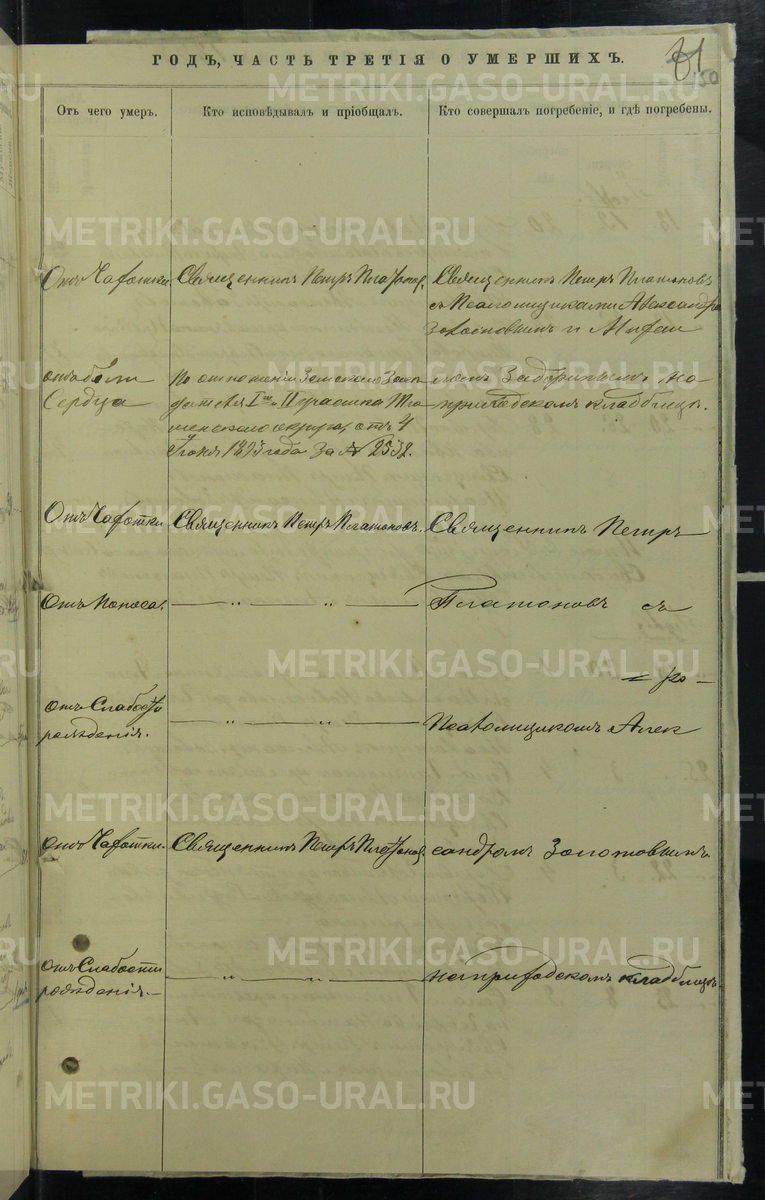 ГОДЪ, ЧАСТЬ ТРЕТІЯ О УМЕРШИХЪ.
81
50
Отъ чего умеръ.
Кто исповѣдывалъ и пріобщалъ.
Кто совершалъ погребеніе, и гдѣ погребены.
Отъ Чахотки.
Священникъ Петръ Платонов.
Священникъ Петръ Платоновъ
съ Псаломщиками Александро
Золотовшимъ и
отъ боли
Сердца
По отношенію Земскаго Засе
дателя I го и II участка
округа, отъ 4
1895 года за № 2532.
на
приходскомъ кладбищѣ.
Отъ Чахотки
Священникъ Петръ Платоновъ.
Священникъ Петръ
Отъ Поноса.
— „ — „ —
Платоновъ съ
Отъ Слабости
рожденія.
— „ — „ —
Псаломщикомъ Алек
Отъ Чахотки.
Священникъ Петръ Платонов.
сандромъ Золотовшимъ
Отъ Слабости
рожденія.—
— „ — „ —
на приходскомъ кладбищѣ.
METRIKI.GASO-URAL.RU